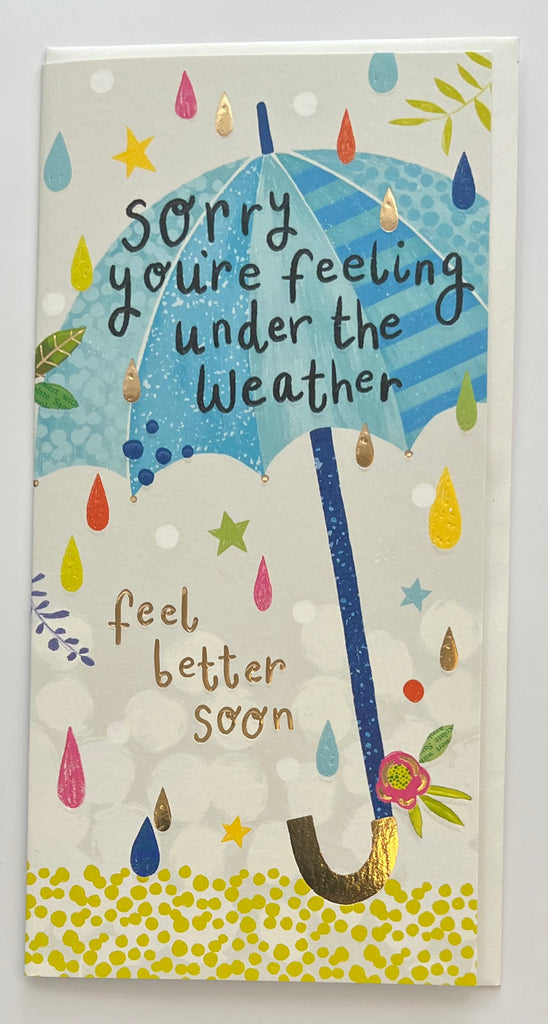 sorry
you're feeling
under the
weather
feel
better
soon